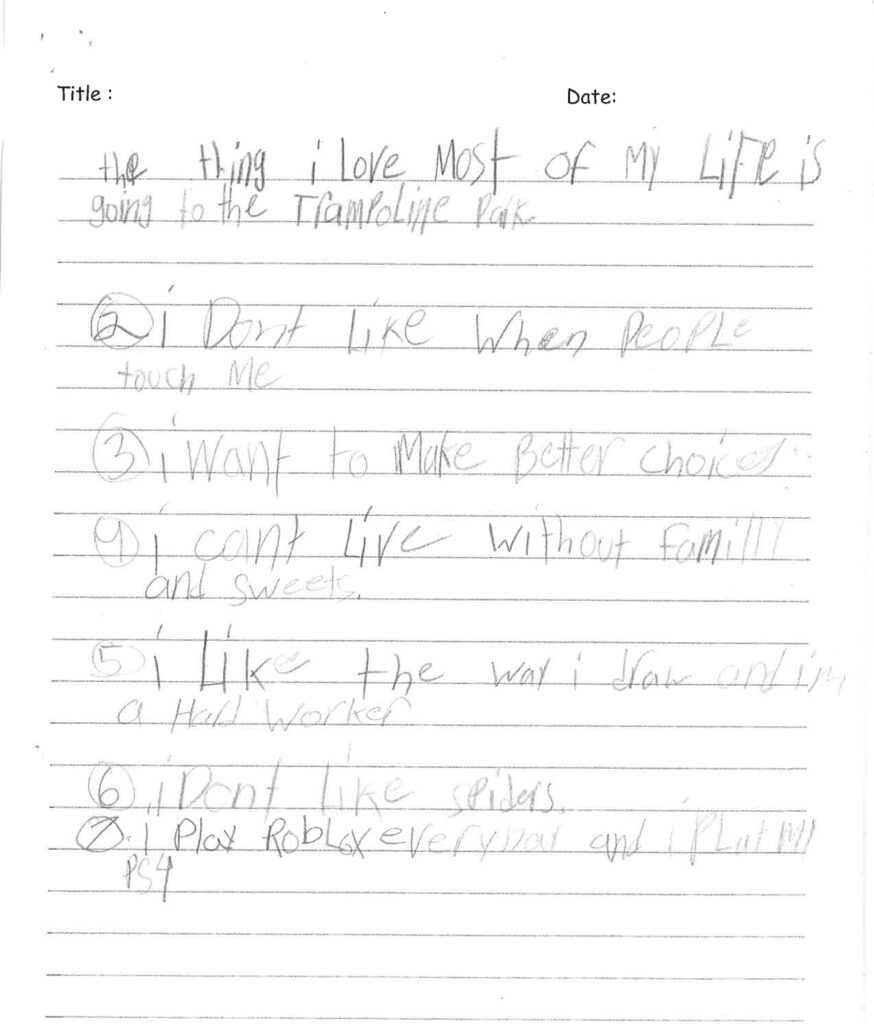 Title :
Date:
the thing i love Most of My LiFe is
going to the TramPoLine Park
2 i Dont Like When PeoPLe
touch Me
3 i Want to Make Better choices.
4 i cant Live without Familly
and sweets.
5 i Like the way i draw and i'm
a Hard Worker
6 i Dont Like spiders.
7. i Play RobLox everyDay and i PLay My
PS4